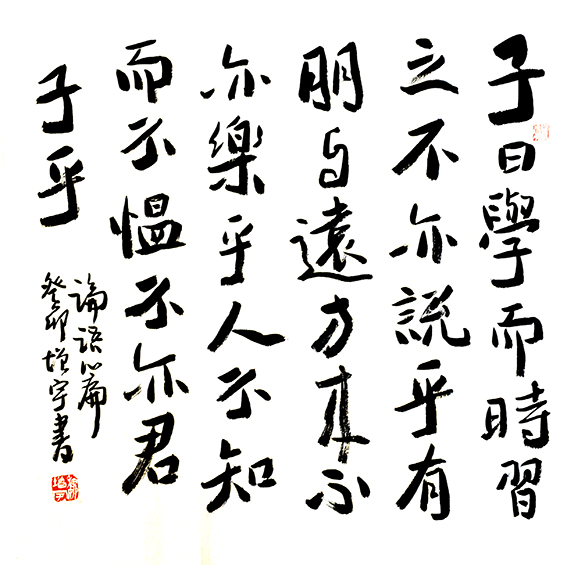 子曰學而時習
之不亦説乎有
朋自遠方来不
亦樂乎人不知
而不愠不亦君
子乎
論語篇
癸卯增宇書